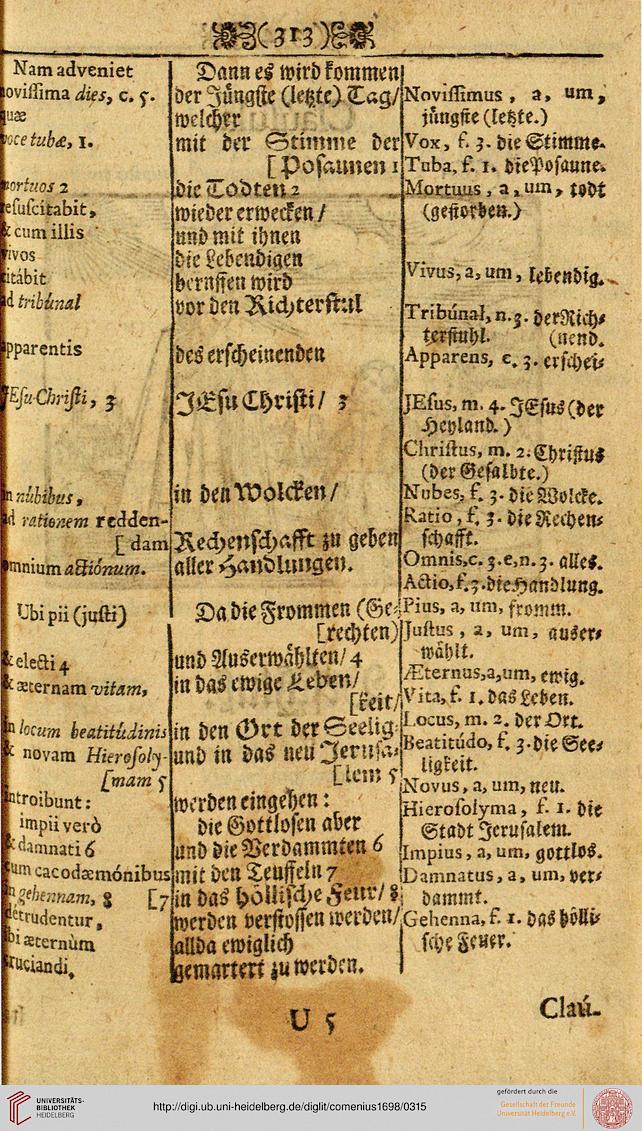 (313)
Nam adveniet
novissima dies, c. 5.
quæ
voce tubæ, 1.
mortuos 2
resuscitabit,
& cum illis
vivos
citábit
ad tribúnal
apparentis
JEsu Christi, 3
in núbibus,
ad rationem redden-
[dam
omnium actiónum.
Ubi pii (justi)
& electi 4
& æternam vitam,
in locum beatitúdinis
& novam Hierosoly-
[mam 5
introibunt:
impii verò
& damnati 6
cum cacodæmónibus
in gehennam, 8 [7
detrudentur,
ibi æternùm
cruciandi.
Dann es wird kommen
der Jüngste (letzte) Tag/
welcher
mit der Stimme der
[Posaunen 1
die Todten 2
wieder erwecken/
und mit ihnen
die Lebendigen
beruffen wird
vor den Richterstul
des erscheinenden
JEsu Christi/ 3
in den Wolcken/
Rechenschafft zu geben
aller Handlungen.
Da die Frommen (Ge-
[rechten)
und Auserwählten/ 4
in das ewige Leben/
[keit/
in den Ort der Seelig-
und in das neu Jerusa-
[lem 5
werden eingehen:
die Gottlosen aber
und die Verdammten 6
mit den Teuffeln 7
in das höllische Feur/ 8
werden verstossen werden/
allda ewiglich
gemartert zu werden.
Novissimus, a, um,
jüngste (letzte.)
Vox, f. 3. die Stimme.
Tuba, f. 1. die Posaune.
Mortuus, a, um, todt
(gestorben.)
Vivus, a, um, lebendig.
Tribúnal, n. 3. der Rich-
terstuhl. (nend.
Apparens, c. 3. erschei-
JEsus, m. 4. JEsus (der
Heyland.)
Christus, m. 2. Christus
(der Gesalbte.)
Nubes, f. 3. die Wolcke.
Ratio, f. 3. die Rechen-
schafft.
Omnis, c. 3. e, n. 3. alles.
Actio, f. 3. die Handlung.
Pius, a, um, fromm.
Justus, a, um, auser-
wählt.
Æternus, a, um, ewig.
Vita, f. 1. das Leben.
Locus, m. 2. der Ort.
Beatitúdo, f. 3. die See-
ligkeit.
Novus, a, um, neu.
Hierosolyma, f. 1. die
Stadt Jerusalem.
Impius, a, um, gottlos.
Damnatus, a, um, ver-
dammt.
Gehenna, f. 1. das hölli-
sche Feuer.
U 5
Claú-
UNIVERSITÄTS-
BIBLIOTHEK
HEIDELBERG
http://digi.ub.uni-heidelberg.de/diglit/comenius1698/0315
gefördert durch die
Gesellschaft der Freunde
Universität Heidelberg e.V.